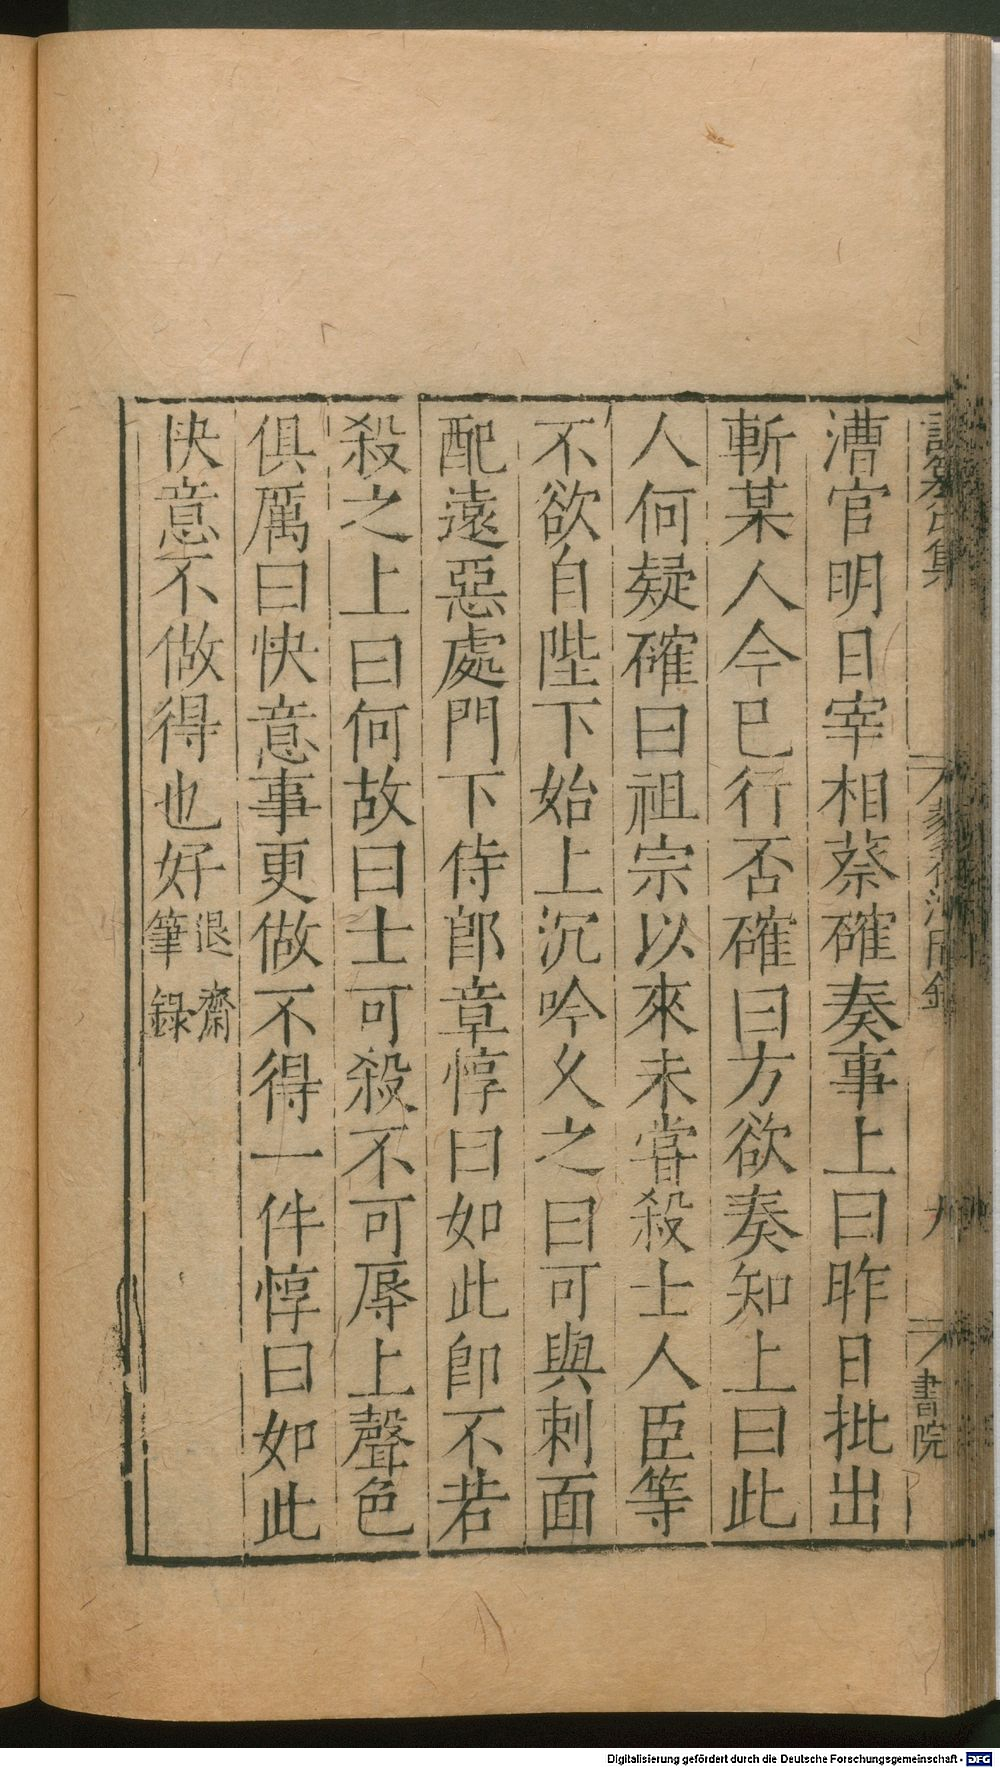 漕官明日宰相蔡確奏事上曰昨日批出
斬某人今已行否確曰方欲奏知上曰此
人何疑確曰祖宗以來未嘗殺士人臣等
不欲自陛下始上沉吟久之曰可與刺面
配遠惡處門下侍郎章惇曰如此即不若
殺之上曰何故曰士可殺不可辱上聲色
俱厲曰快意事更做不得一件惇曰如此
快意不做得也好退齋筆錄
集
九
書院
Digitalisierung gefördert durch die Deutsche Forschungsgemeinschaft - DFG